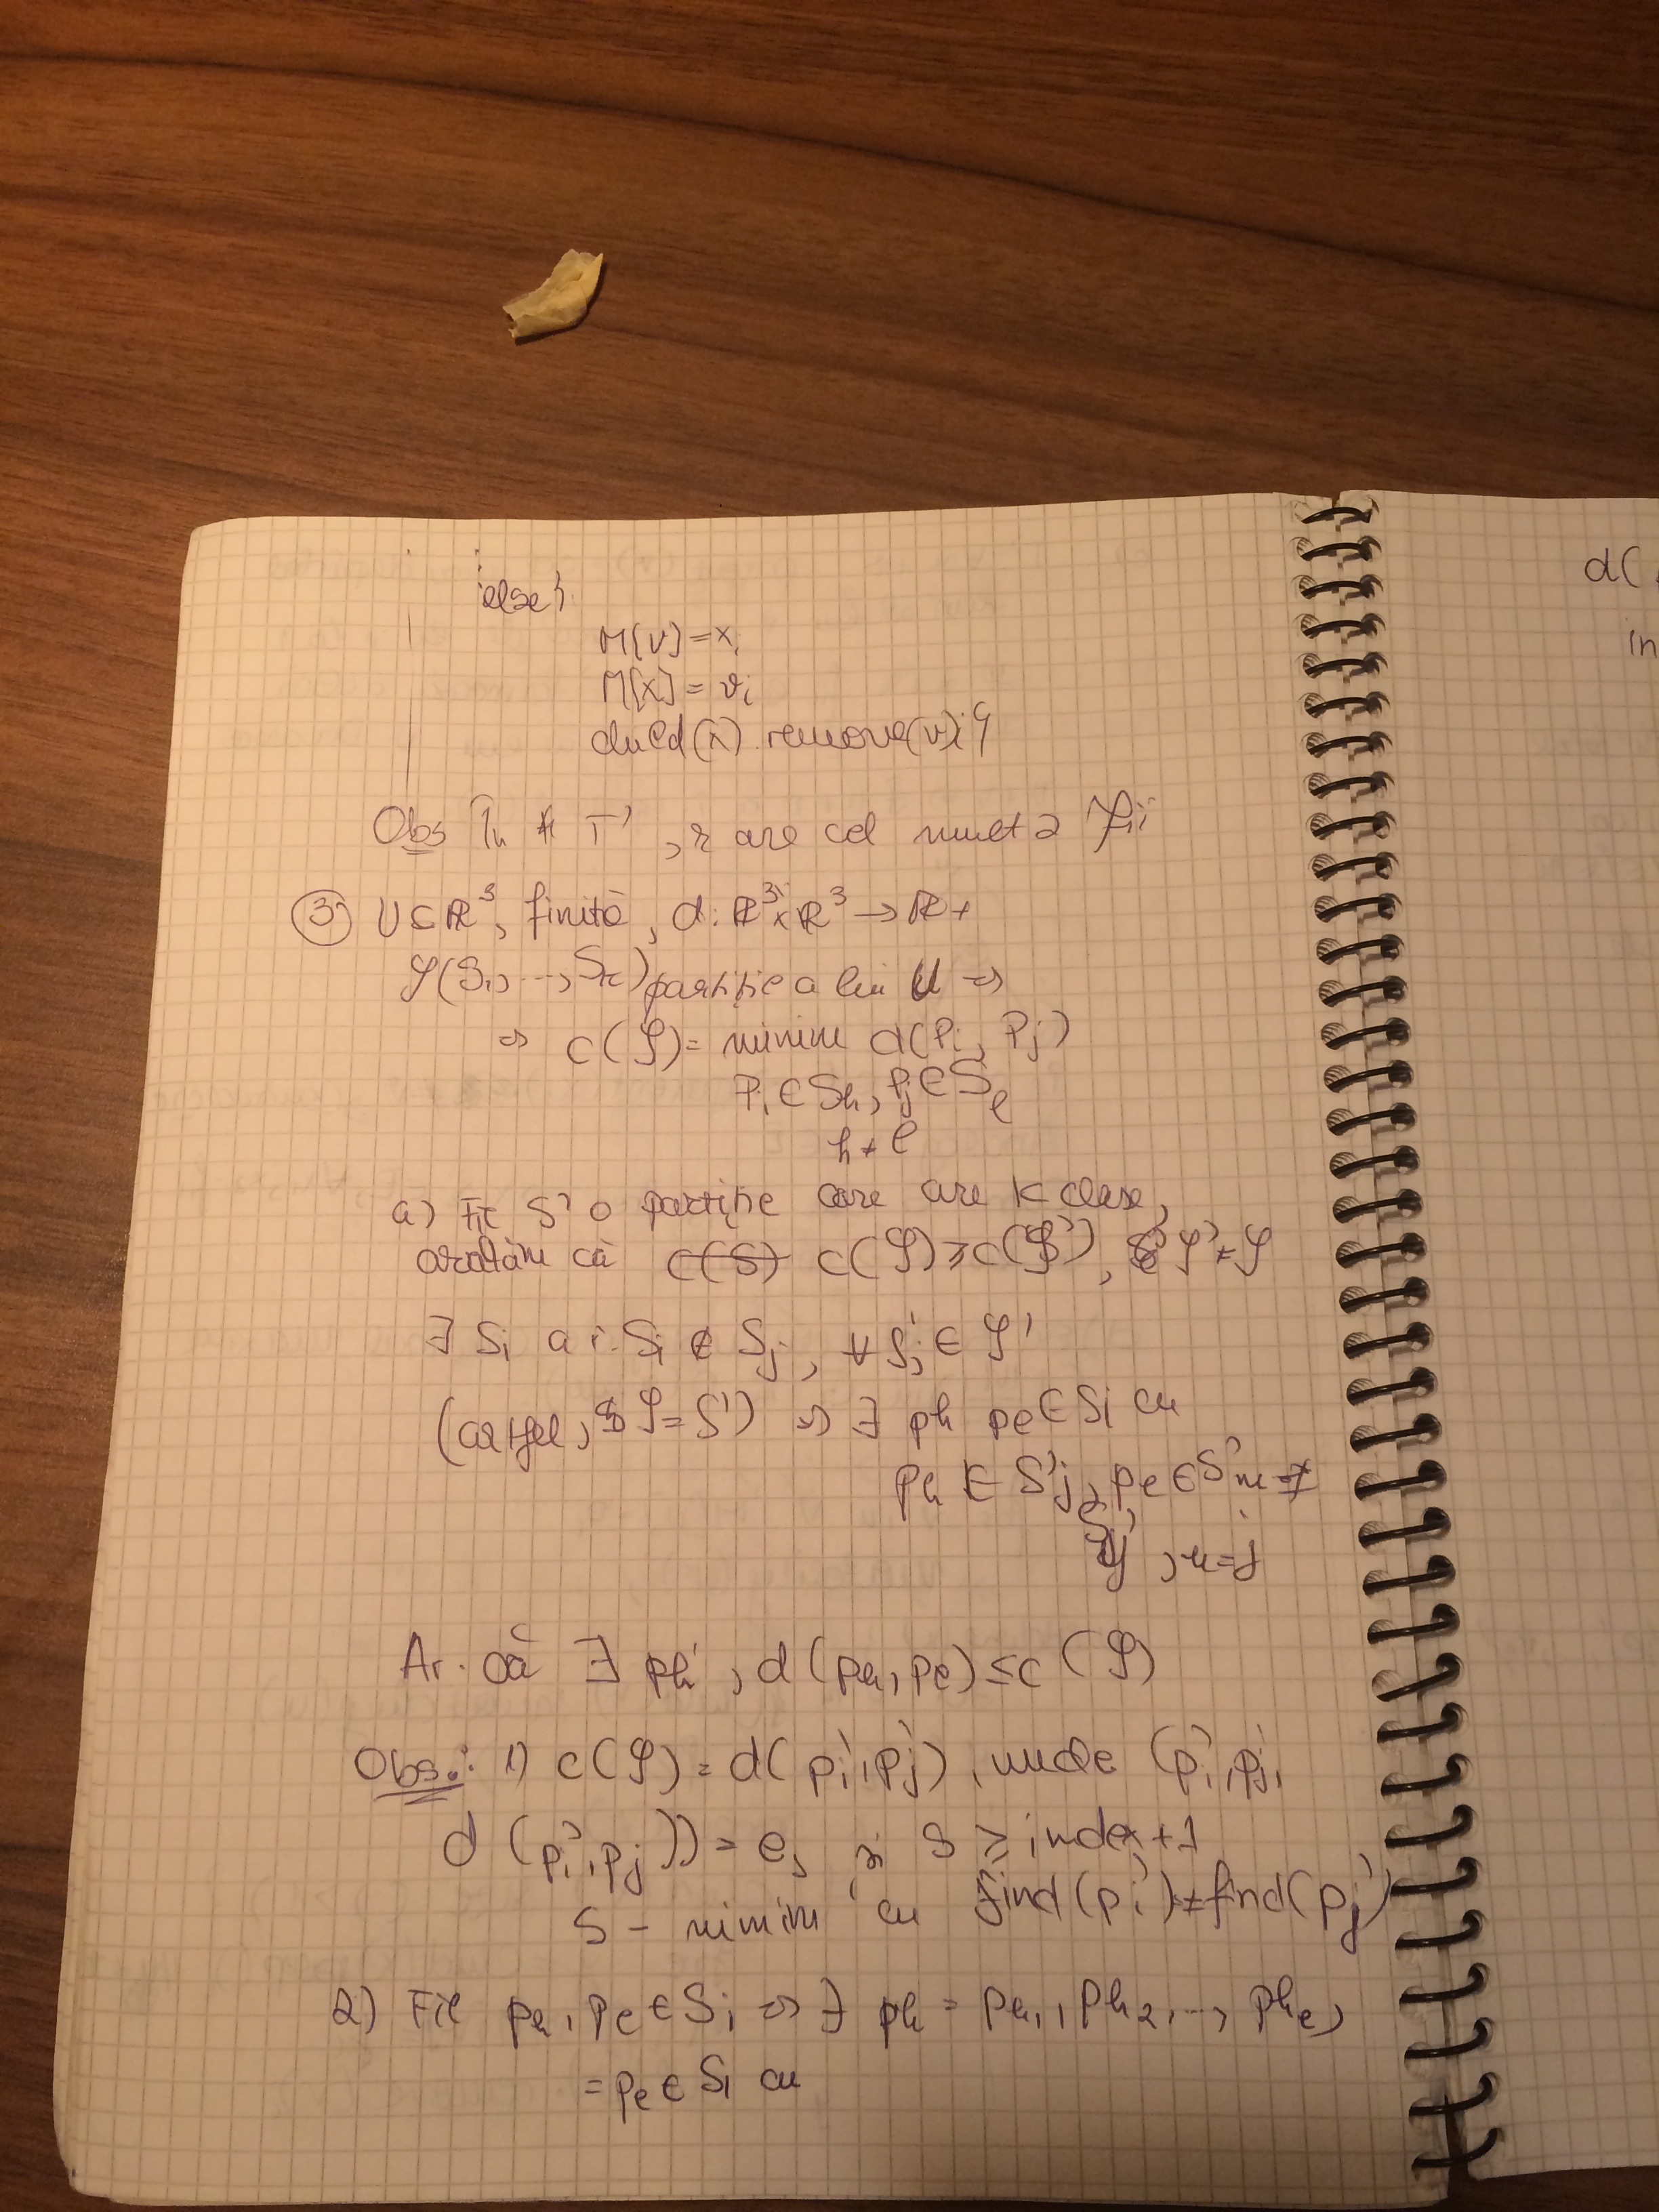 else{
M[v]=x;
M[x]=v;
child(x).remove(v);}
Obs În T', r are cel mult 2 fii
③ U⊆ℝ³, finită, d: ℝ³×ℝ³→ℝ+
𝒮(S₁,...,Sₖ) partiție a lui U ⇒
⇒ c(𝒮)= minim d(Pi, Pj)
Pi∈Sh, Pj∈Sl
h≠l
a) Fie S' o partiție care are k clase,
arătăm că c(S) c(𝒮)≥c(𝒮'), 𝒮'≠𝒮
∃ Si a î. Si ⊄ S'j, ∀ S'j∈ 𝒮'
(astfel, 𝒮=S') ⇒ ∃ ph pl∈Si cu
ph ∈ S'j, pl∈S'm ≠
S'j, m=j
Ar. că ∃ ph', d(ph, pl)≤c(𝒮)
Obs.: 1) c(𝒮)=d(pi', pj'), unde (pi', pj',
d(pi', pj'))=es și s≥index+1
s - minim cu find(pi')≠find(pj')
2) Fie ph, pl∈Si ⇒ ∃ ph = ph1, ph2,..., phe,
=pl∈Si cu
d(
in